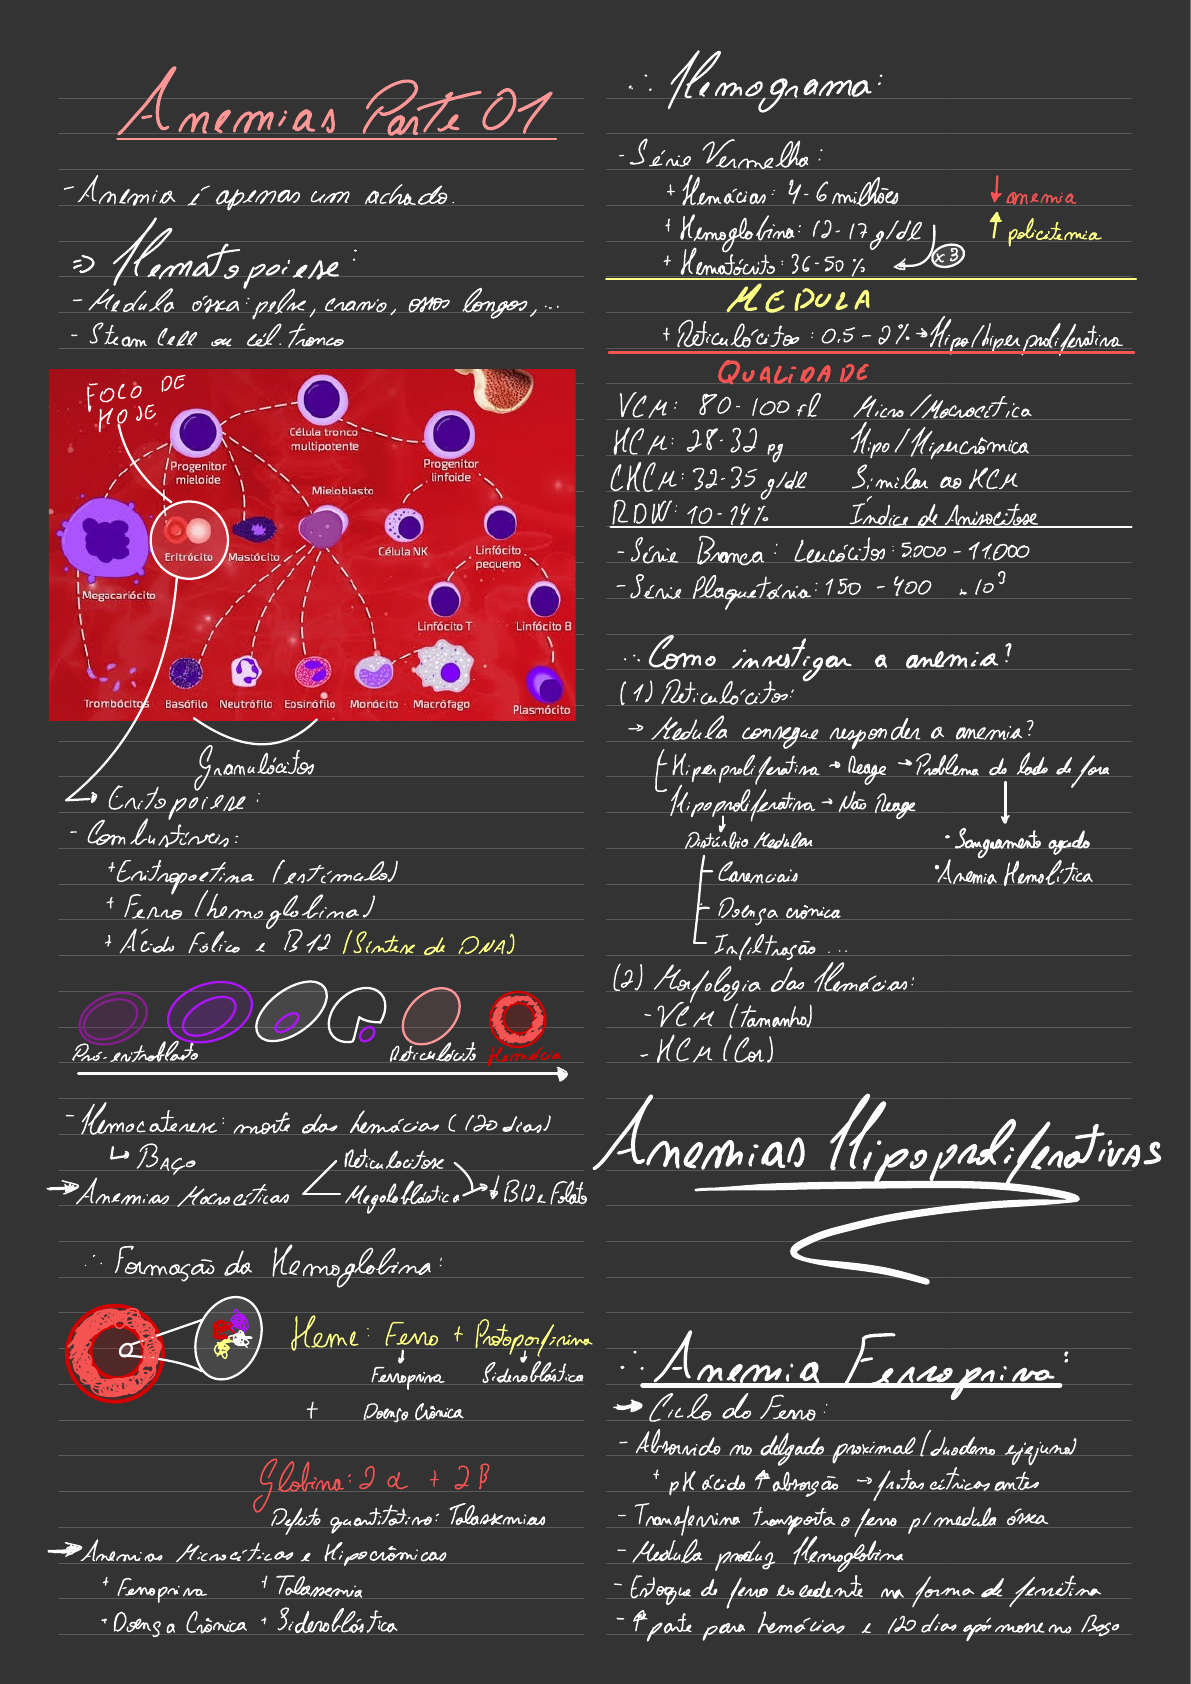 Anemias Parte 01
- Anemia é apenas um achado.
=> Hematopoiese:
- Medula óssea: pelve, cranio, ossos longos, ...
- Steam Cell ou cél. tronco
FOCO DE HOJE
Célula tronco multipotente
Progenitor mieloide
Progenitor linfoide
Mieloblasto
Eritrócito
Mastócito
Célula NK
Linfócito pequeno
Megacariócito
Linfócito T
Linfócito B
Trombócitos
Basófilo
Neutrófilo
Eosinófilo
Monócito
Macrófago
Plasmócito
Granulócitos
→ Eritopoiese:
- Combustíveis:
+ Eritropoetina (estímulo)
+ Ferro (hemoglobina)
+ Ácido Fólico e B12 (Síntese de DNA)
Pró-eritroblasto
Reticulócito
Hemácia
- Hemocaterese: morte das hemácias (120 dias)
↳ BAÇO
Reticulocitose
→ Anemias Macrocíticas
Megaloblástica → ↓ B12 e Folato
∴ Formação da Hemoglobina:
Heme: Ferro + Protoporfirina
Ferropriva
Sideroblástica
+ Doença Crônica
Globina: 2 α + 2 β
Defeito quantitativo: Talassemias
→ Anemias Microcíticas e Hipocrômicas
+ Ferropriva
+ Talassemia
+ Doença Crônica
+ Sideroblástica
∴ Hemograma:
- Série Vermelha:
+ Hemácias: 4-6 milhões
↓ anemia
+ Hemoglobina: 12-17 g/dl
↑ policitemia
+ Hematócrito: 36-50 %
x3
MEDULA
+ Reticulócitos: 0,5 - 2% → Hipo/hiperproliferativa
QUALIDADE
VCM: 80-100 fl Micro/Macrocítica
HCM: 28-32 pg Hipo/Hipercrômica
CHCM: 32-35 g/dl Similar ao HCM
RDW: 10-14% Índice de Anisocitose
- Série Branca: Leucócitos: 5000 - 11.000
- Série Plaquetária: 150 - 400 . 10³
∴ Como investigar a anemia?
(1) Reticulócitos:
→ Medula consegue responder a anemia?
Hiperproliferativa → Reage → Problema do lado de fora
Hipoproliferativa → Não Reage
Distúrbio Medular
• Sangramento agudo
Carenciais
• Anemia Hemolítica
Doença crônica
Infiltração ...
(2) Morfologia das Hemácias:
- VCM (tamanho)
- HCM (Cor)
Anemias Hipoproliferativas
∴ Anemia Ferropriva:
→ Ciclo do Ferro:
- Absorvido no delgado proximal (duodeno e jejuno)
+ pH ácido ↑ absorção → frutas cítricas antes
- Transferrina transporta o ferro p/ medula óssea
- Medula produz Hemoglobina
- Estoque de ferro excedente na forma de ferritina
- ↑ parte para hemácias e 120 dias após morre no Baço